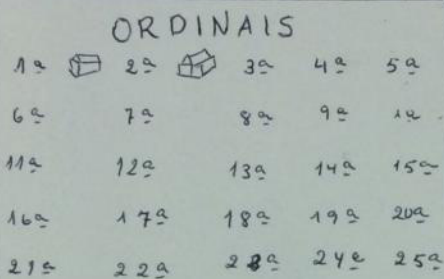 ORDINAIS
1ª 2ª 3ª 4ª 5ª
6ª 7ª 8ª 9ª 1ª
11ª 12ª 13ª 14ª 15ª
16ª 17ª 18ª 19ª 20ª
21ª 22ª 23ª 24ª 25ª